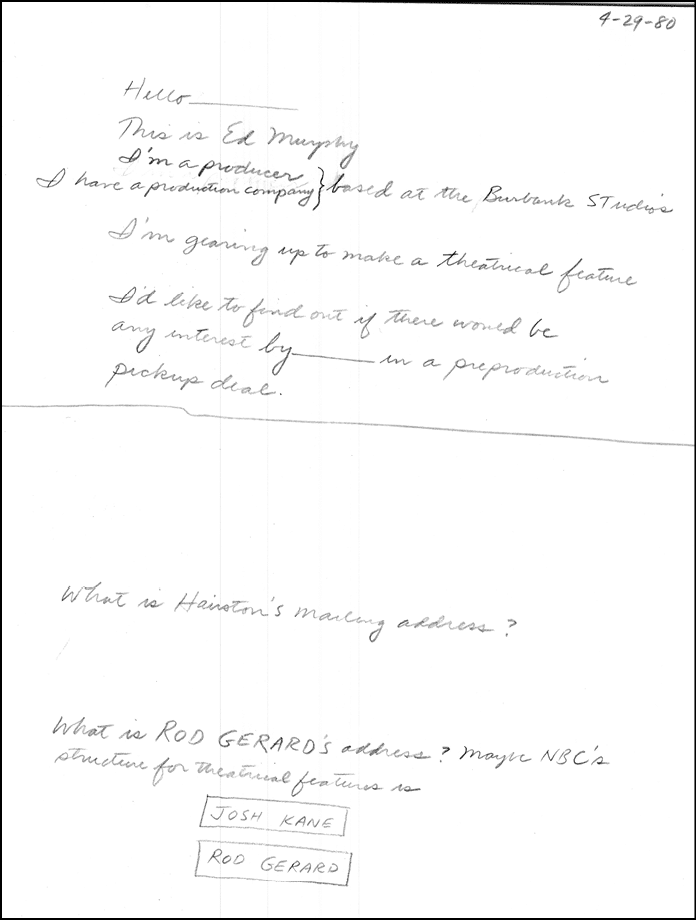 4-29-80
Hello ________
This is Ed Murphy
I'm a producer
I have a production company } based at the Burbank STudios
I'm gearing up to make a theatrical feature
I'd like to find out if there would be
any interest by ________ in a preproduction
pickup deal.
What is Hairston's mailing address ?
What is ROD GERARD'S address ? Maybe NBC's
structure for theatrical features is
JOSH KANE
ROD GERARD